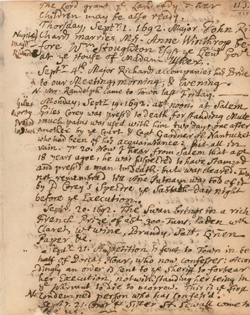 The Lord grant yt Landlady & her
Children may be also ready.
Thorsday, Septr 1. 1692. Major John Ri-
chards married Mrs Anne Winthrop be-
fore Wm Stoughton Esqr ye Lieut Govr
at ye house of Madam Usher.
Sept. 4th Major Richards accompanies his Bride
to our Meeting, morning & evening
Mr Randolph came to Town last Friday.
Monday, Sept. 19. 1692. about noon at Salem
Giles Corey was press'd to death for standing Mute
much pains was used with him two days, one after
another by ye Court & Capt Gardner of Nantucket
who had been of his acquaintance: but all in
vain. Sept. 20. Now I hear from Salem that abt
18 years agoe, he was suspected to have stamped
and press'd a man to death, but was cleared. Twas
not remembred till Anne Putnam was told of it
by Corey's Spectre, ye Sabbath-day night
before ye Execution.
Sept. 20. 1692. The Swan brings in a rich
French Prize of abt 300 Tuns, laden with
Claret, white wine, Brandy, Salt, Linen
Paper, &c.
Sept. 21. A petition is sent to Town in be-
half of Dorcas Hoar, who now confesses: accor-
dingly an order is sent to ye Sheriff to forbear
her Execution, notwithstanding her being in
ye Warrant to die to morrow. This is ye first
condemned person who has confess'd.